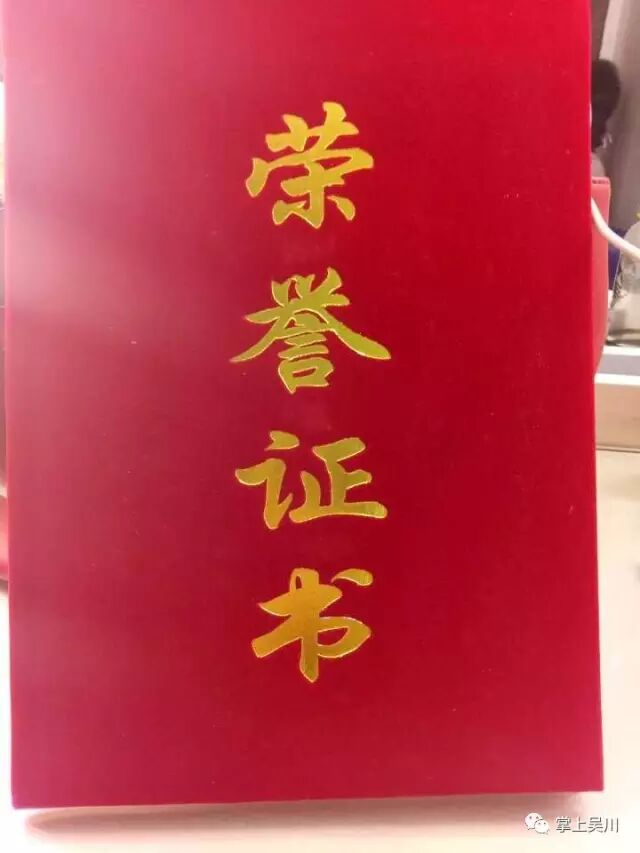 荣誉证书
掌上吴川